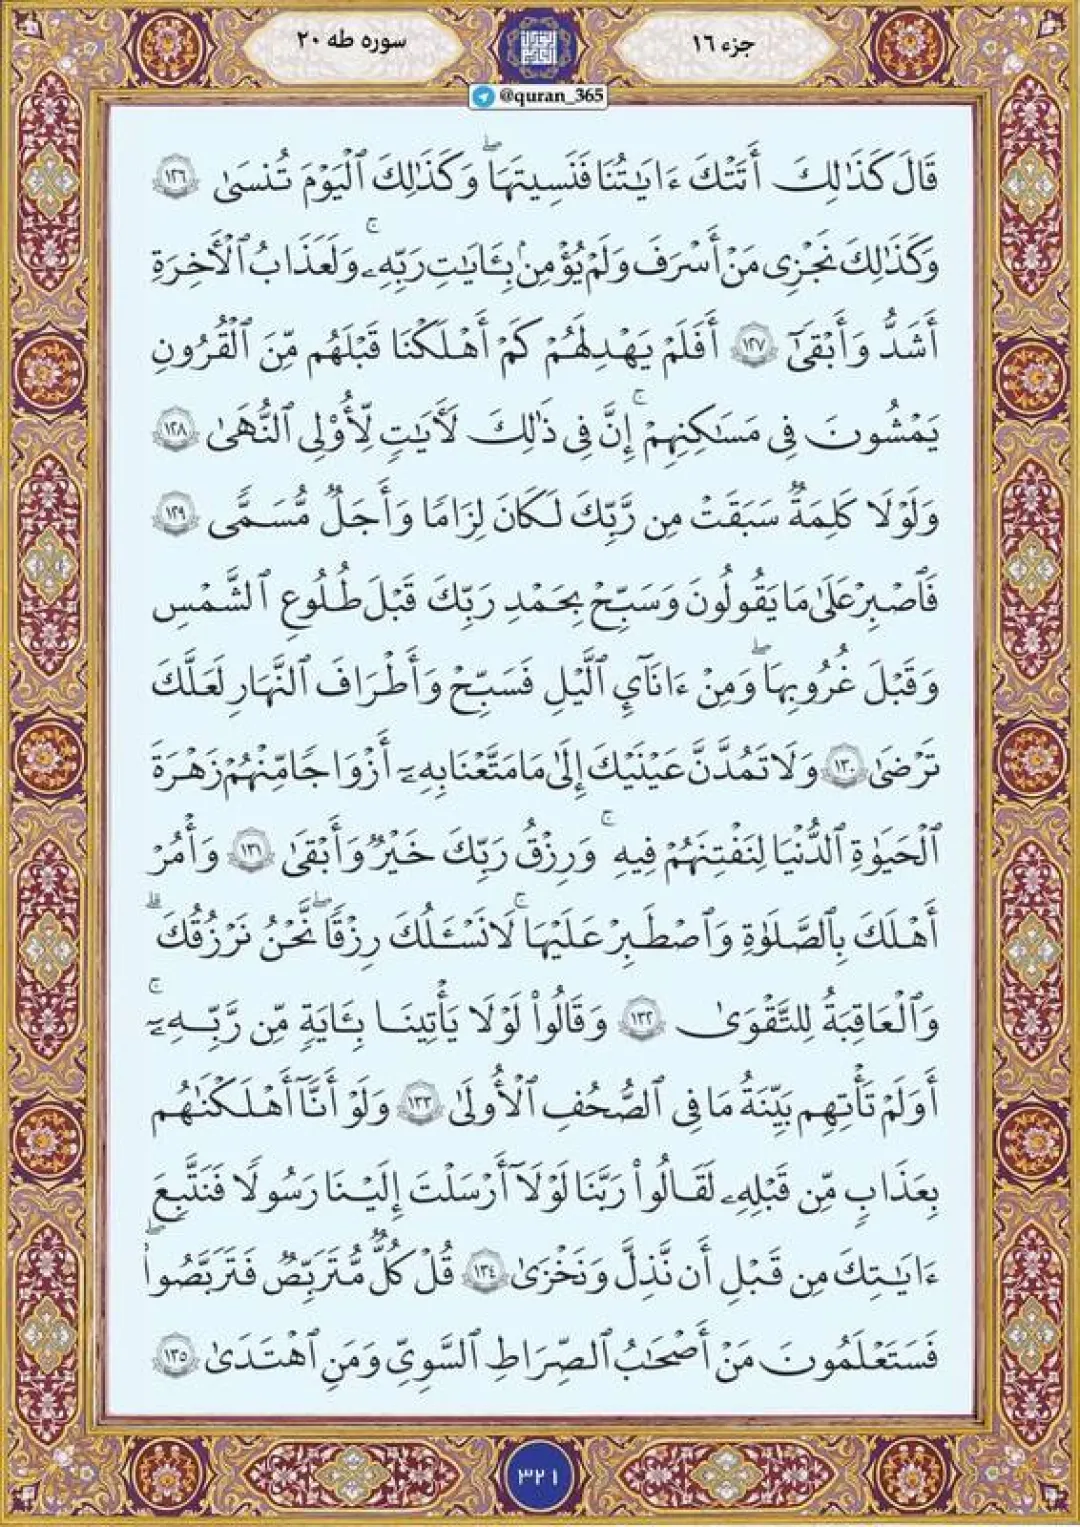 جزء ١٦
سوره طه ٢٠
@quran_365
قَالَ كَذَٰلِكَ أَتَتْكَ ءَايَٰتُنَا فَنَسِيتَهَا ۖ وَكَذَٰلِكَ ٱلْيَوْمَ تُنسَىٰ ١٢٦
وَكَذَٰلِكَ نَجْزِى مَنْ أَسْرَفَ وَلَمْ يُؤْمِنۢ بِـَٔايَٰتِ رَبِّهِۦ ۚ وَلَعَذَابُ ٱلْأَخِرَةِ
أَشَدُّ وَأَبْقَىٰٓ ١٢٧ أَفَلَمْ يَهْدِ لَهُمْ كَمْ أَهْلَكْنَا قَبْلَهُم مِّنَ ٱلْقُرُونِ
يَمْشُونَ فِى مَسَٰكِنِهِمْ ۚ إِنَّ فِى ذَٰلِكَ لَأَيَٰتٍ لِّأُو۟لِى ٱلنُّهَىٰ ١٢٨
وَلَوْلَا كَلِمَةٌ سَبَقَتْ مِن رَّبِّكَ لَكَانَ لِزَامًا وَأَجَلٌ مُّسَمًّى ١٢٩
فَٱصْبِرْ عَلَىٰ مَا يَقُولُونَ وَسَبِّحْ بِحَمْدِ رَبِّكَ قَبْلَ طُلُوعِ ٱلشَّمْسِ
وَقَبْلَ غُرُوبِهَا ۖ وَمِنْ ءَانَآئِ ٱلَّيْلِ فَسَبِّحْ وَأَطْرَافَ ٱلنَّهَارِ لَعَلَّكَ
تَرْضَىٰ ١٣٠ وَلَا تَمُدَّنَّ عَيْنَيْكَ إِلَىٰ مَا مَتَّعْنَا بِهِۦٓ أَزْوَٰجًا مِّنْهُمْ زَهْرَةَ
ٱلْحَيَوٰةِ ٱلدُّنْيَا لِنَفْتِنَهُمْ فِيهِ ۚ وَرِزْقُ رَبِّكَ خَيْرٌ وَأَبْقَىٰ ١٣١ وَأْمُرْ
أَهْلَكَ بِٱلصَّلَوٰةِ وَٱصْطَبِرْ عَلَيْهَا ۖ لَا نَسْـَٔلُكَ رِزْقًا ۖ نَّحْنُ نَرْزُقُكَ ۗ
وَٱلْعَٰقِبَةُ لِلتَّقْوَىٰ ١٣٢ وَقَالُوا۟ لَوْلَا يَأْتِينَا بِـَٔايَةٍ مِّن رَّبِّهِۦٓ ۚ
أَوَلَمْ تَأْتِهِم بَيِّنَةُ مَا فِى ٱلصُّحُفِ ٱلْأُولَىٰ ١٣٣ وَلَوْ أَنَّآ أَهْلَكْنَٰهُم
بِعَذَابٍ مِّن قَبْلِهِۦ لَقَالُوا۟ رَبَّنَا لَوْلَآ أَرْسَلْتَ إِلَيْنَا رَسُولًا فَنَتَّبِعَ
ءَايَٰتِكَ مِن قَبْلِ أَن نَّذِلَّ وَنَخْزَىٰ ١٣٤ قُلْ كُلٌّ مُّتَرَبِّصٌ فَتَرَبَّصُوا۟ ۖ
فَسَتَعْلَمُونَ مَنْ أَصْحَٰبُ ٱلصِّرَٰطِ ٱلسَّوِىِّ وَمَنِ ٱهْتَدَىٰ ١٣٥
٣٢١